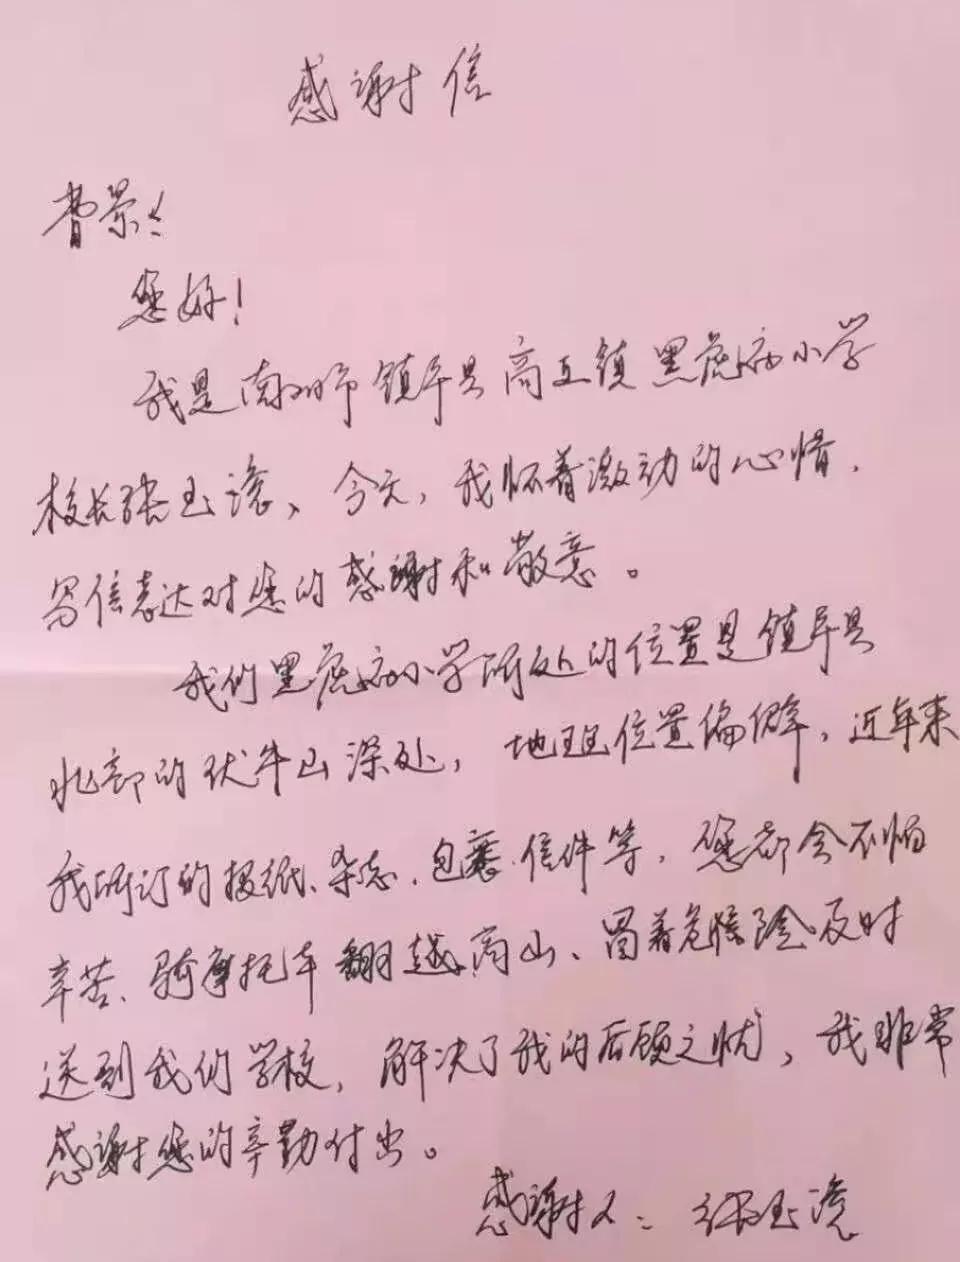 感谢信
曹景：
您好！
我是南阳市镇平县高丘镇黑虎庙小学
校长张玉滚、今天，我怀着激动的心情，
写信表达对您的感谢和敬意。
我们黑虎庙小学所处的位置是镇平县
北部的伏牛山深处，地理位置偏僻，近年来
我所订的报纸、杂志、包裹、信件等，您都会不怕
辛苦、骑摩托车翻越高山、冒着危险及时
送到我们学校，解决了我的后顾之忧，我非常
感谢您的辛勤付出。
感谢人：张玉滚